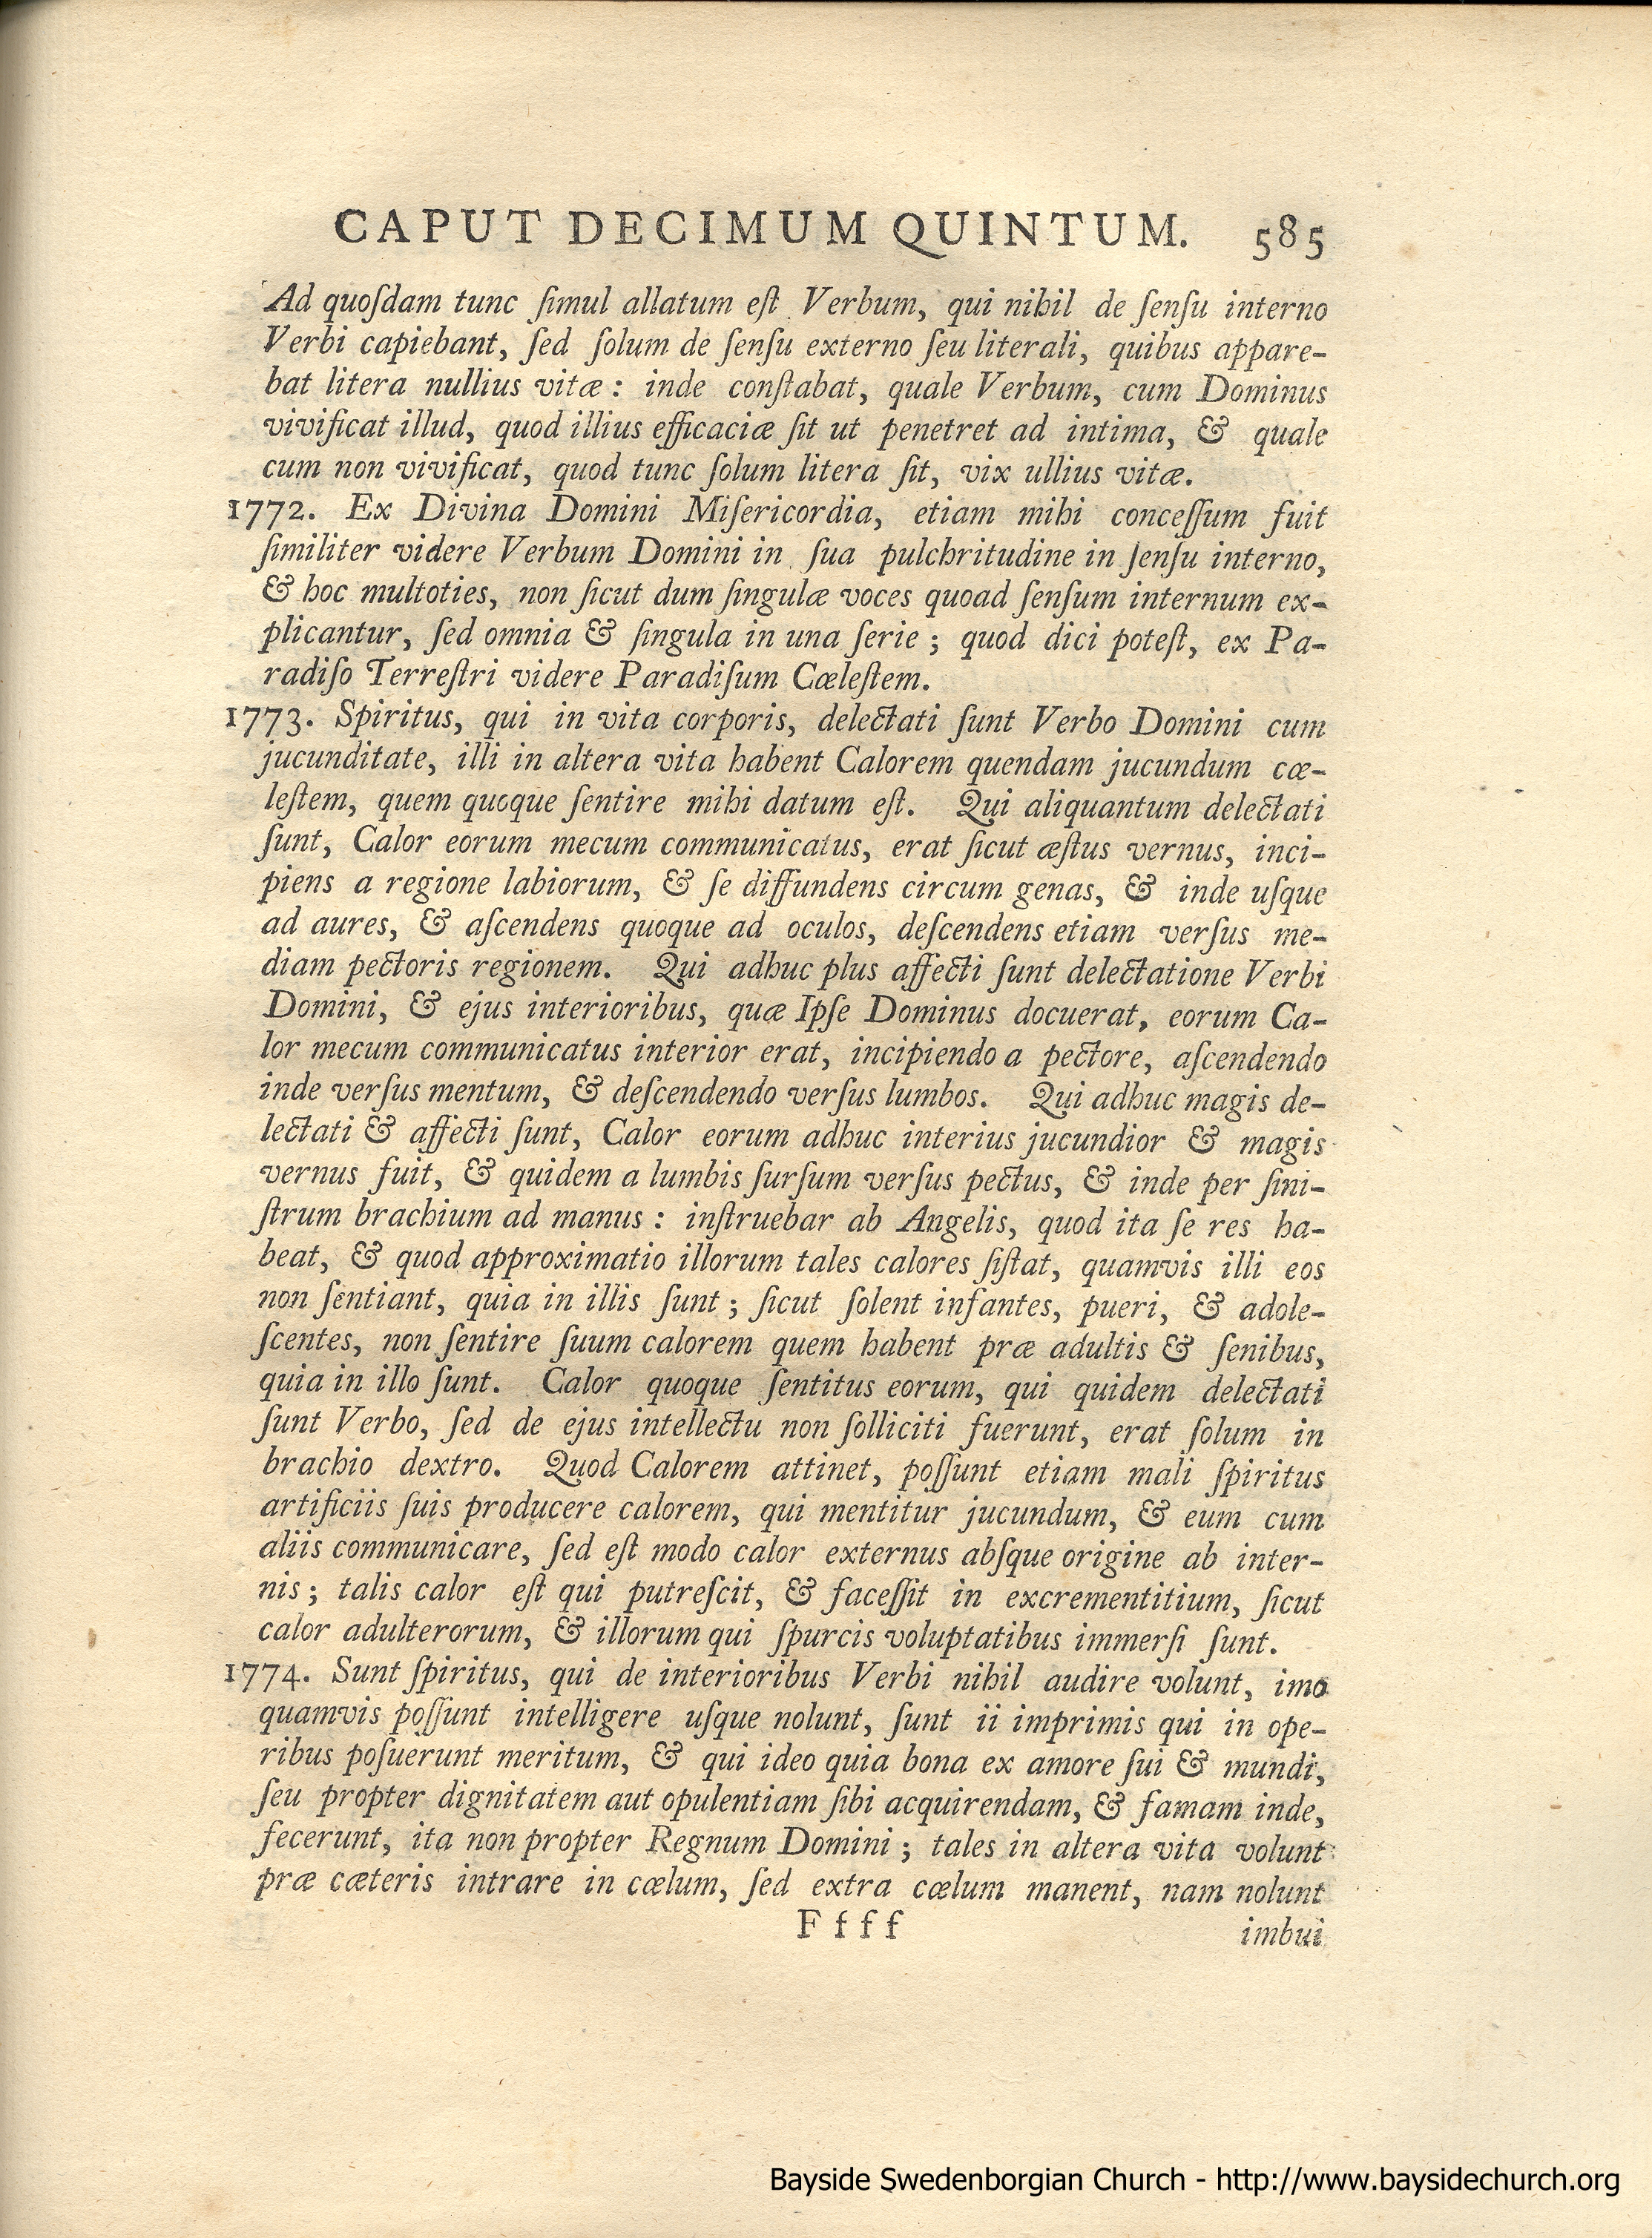 CAPUT DECIMUM QUINTUM. 585
Ad quoſdam tunc ſimul allatum eſt Verbum, qui nihil de ſenſu interno
Verbi capiebant, ſed ſolum de ſenſu externo ſeu literali, quibus appare-
bat litera nullius vitæ: inde conſtabat, quale Verbum, cum Dominus
vivificat illud, quod illius efficaciæ ſit ut penetret ad intima, & quale
cum non vivificat, quod tunc ſolum litera ſit, vix ullius vitæ.
1772. Ex Divina Domini Miſericordia, etiam mihi conceſſum fuit
ſimiliter videre Verbum Domini in ſua pulchritudine in ſenſu interno,
& hoc multoties, non ſicut dum ſingulæ voces quoad ſenſum internum ex-
plicantur, ſed omnia & ſingula in una ſerie; quod dici poteſt, ex Pa-
radiſo Terreſtri videre Paradiſum Cœleſtem.
1773. Spiritus, qui in vita corporis, delectati ſunt Verbo Domini cum
jucunditate, illi in altera vita habent Calorem quendam jucundum cœ-
leſtem, quem quoque ſentire mihi datum eſt. Qui aliquantum delectati
ſunt, Calor eorum mecum communicatus, erat ſicut æſtus vernus, inci-
piens a regione labiorum, & ſe diffundens circum genas, & inde uſque
ad aures, & aſcendens quoque ad oculos, deſcendens etiam verſus me-
diam pectoris regionem. Qui adhuc plus affecti ſunt delectatione Verbi
Domini, & ejus interioribus, quæ Ipſe Dominus docuerat, eorum Ca-
lor mecum communicatus interior erat, incipiendo a pectore, aſcendendo
inde verſus mentum, & deſcendendo verſus lumbos. Qui adhuc magis de-
lectati & affecti ſunt, Calor eorum adhuc interius jucundior & magis
vernus fuit, & quidem a lumbis ſurſum verſus pectus, & inde per ſini-
ſtrum brachium ad manus: inſtruebar ab Angelis, quod ita ſe res ha-
beat, & quod approximatio illorum tales calores ſiſtat, quamvis illi eos
non ſentiant, quia in illis ſunt; ſicut ſolent infantes, pueri, & adole-
ſcentes, non ſentire ſuum calorem quem habent præ adultis & ſenibus,
quia in illo ſunt. Calor quoque ſentitus eorum, qui quidem delectati
ſunt Verbo, ſed de ejus intellectu non ſolliciti fuerunt, erat ſolum in
brachio dextro. Quod Calorem attinet, poſſunt etiam mali ſpiritus
artificiis ſuis producere calorem, qui mentitur jucundum, & eum cum
aliis communicare, ſed eſt modo calor externus abſque origine ab inter-
nis; talis calor eſt qui putreſcit, & faceſſit in excrementitium, ſicut
calor adulterorum, & illorum qui ſpurcis voluptatibus immerſi ſunt.
1774. Sunt ſpiritus, qui de interioribus Verbi nihil audire volunt, imo
quamvis poſſunt intelligere uſque nolunt, ſunt ii imprimis qui in ope-
ribus poſuerunt meritum, & qui ideo quia bona ex amore ſui & mundi,
ſeu propter dignitatem aut opulentiam ſibi acquirendam, & famam inde,
fecerunt, ita non propter Regnum Domini; tales in altera vita volunt
præ cæteris intrare in cœlum, ſed extra cœlum manent, nam nolunt
F f f f imbui
Bayside Swedenborgian Church - http://www.baysidechurch.org